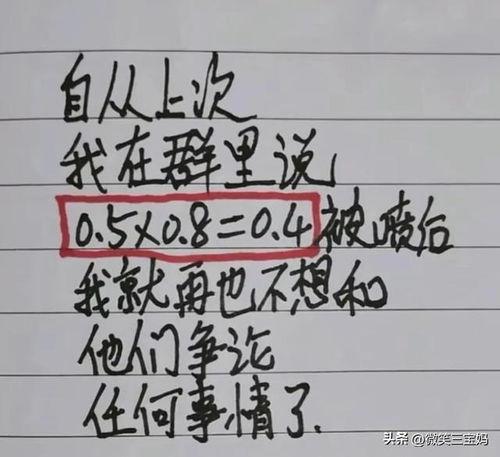 自从上次
我在群里说
0.5×0.8=0.4被喷后
我就再也不想和
他们争论
任何事情了.
头条 @微笑三宝妈